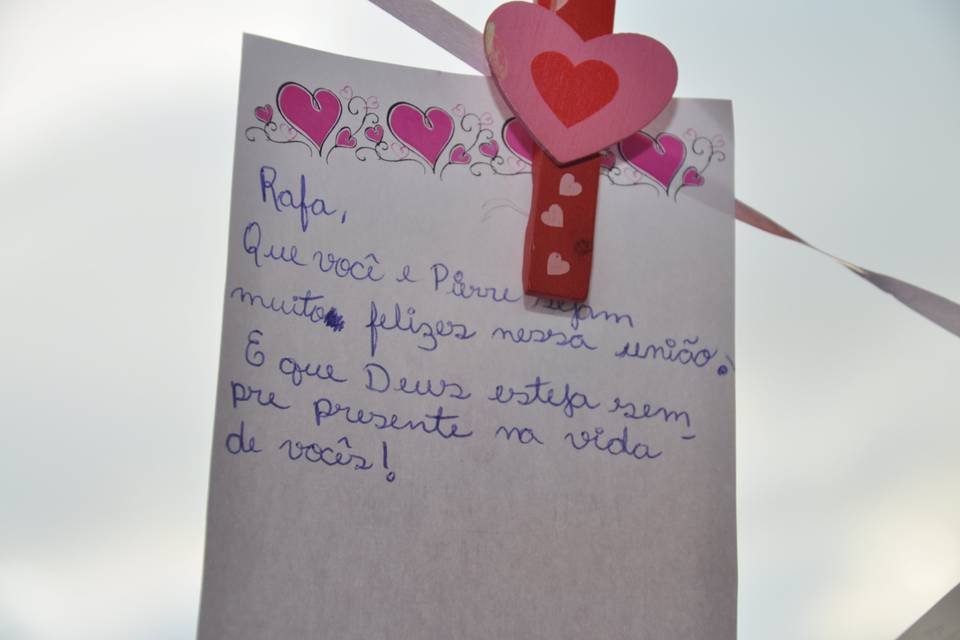 Rafa,
Que você e Pierre sejam
muito felizes nessa união!
E que Deus esteja sem-
pre presente na vida
de vocês!